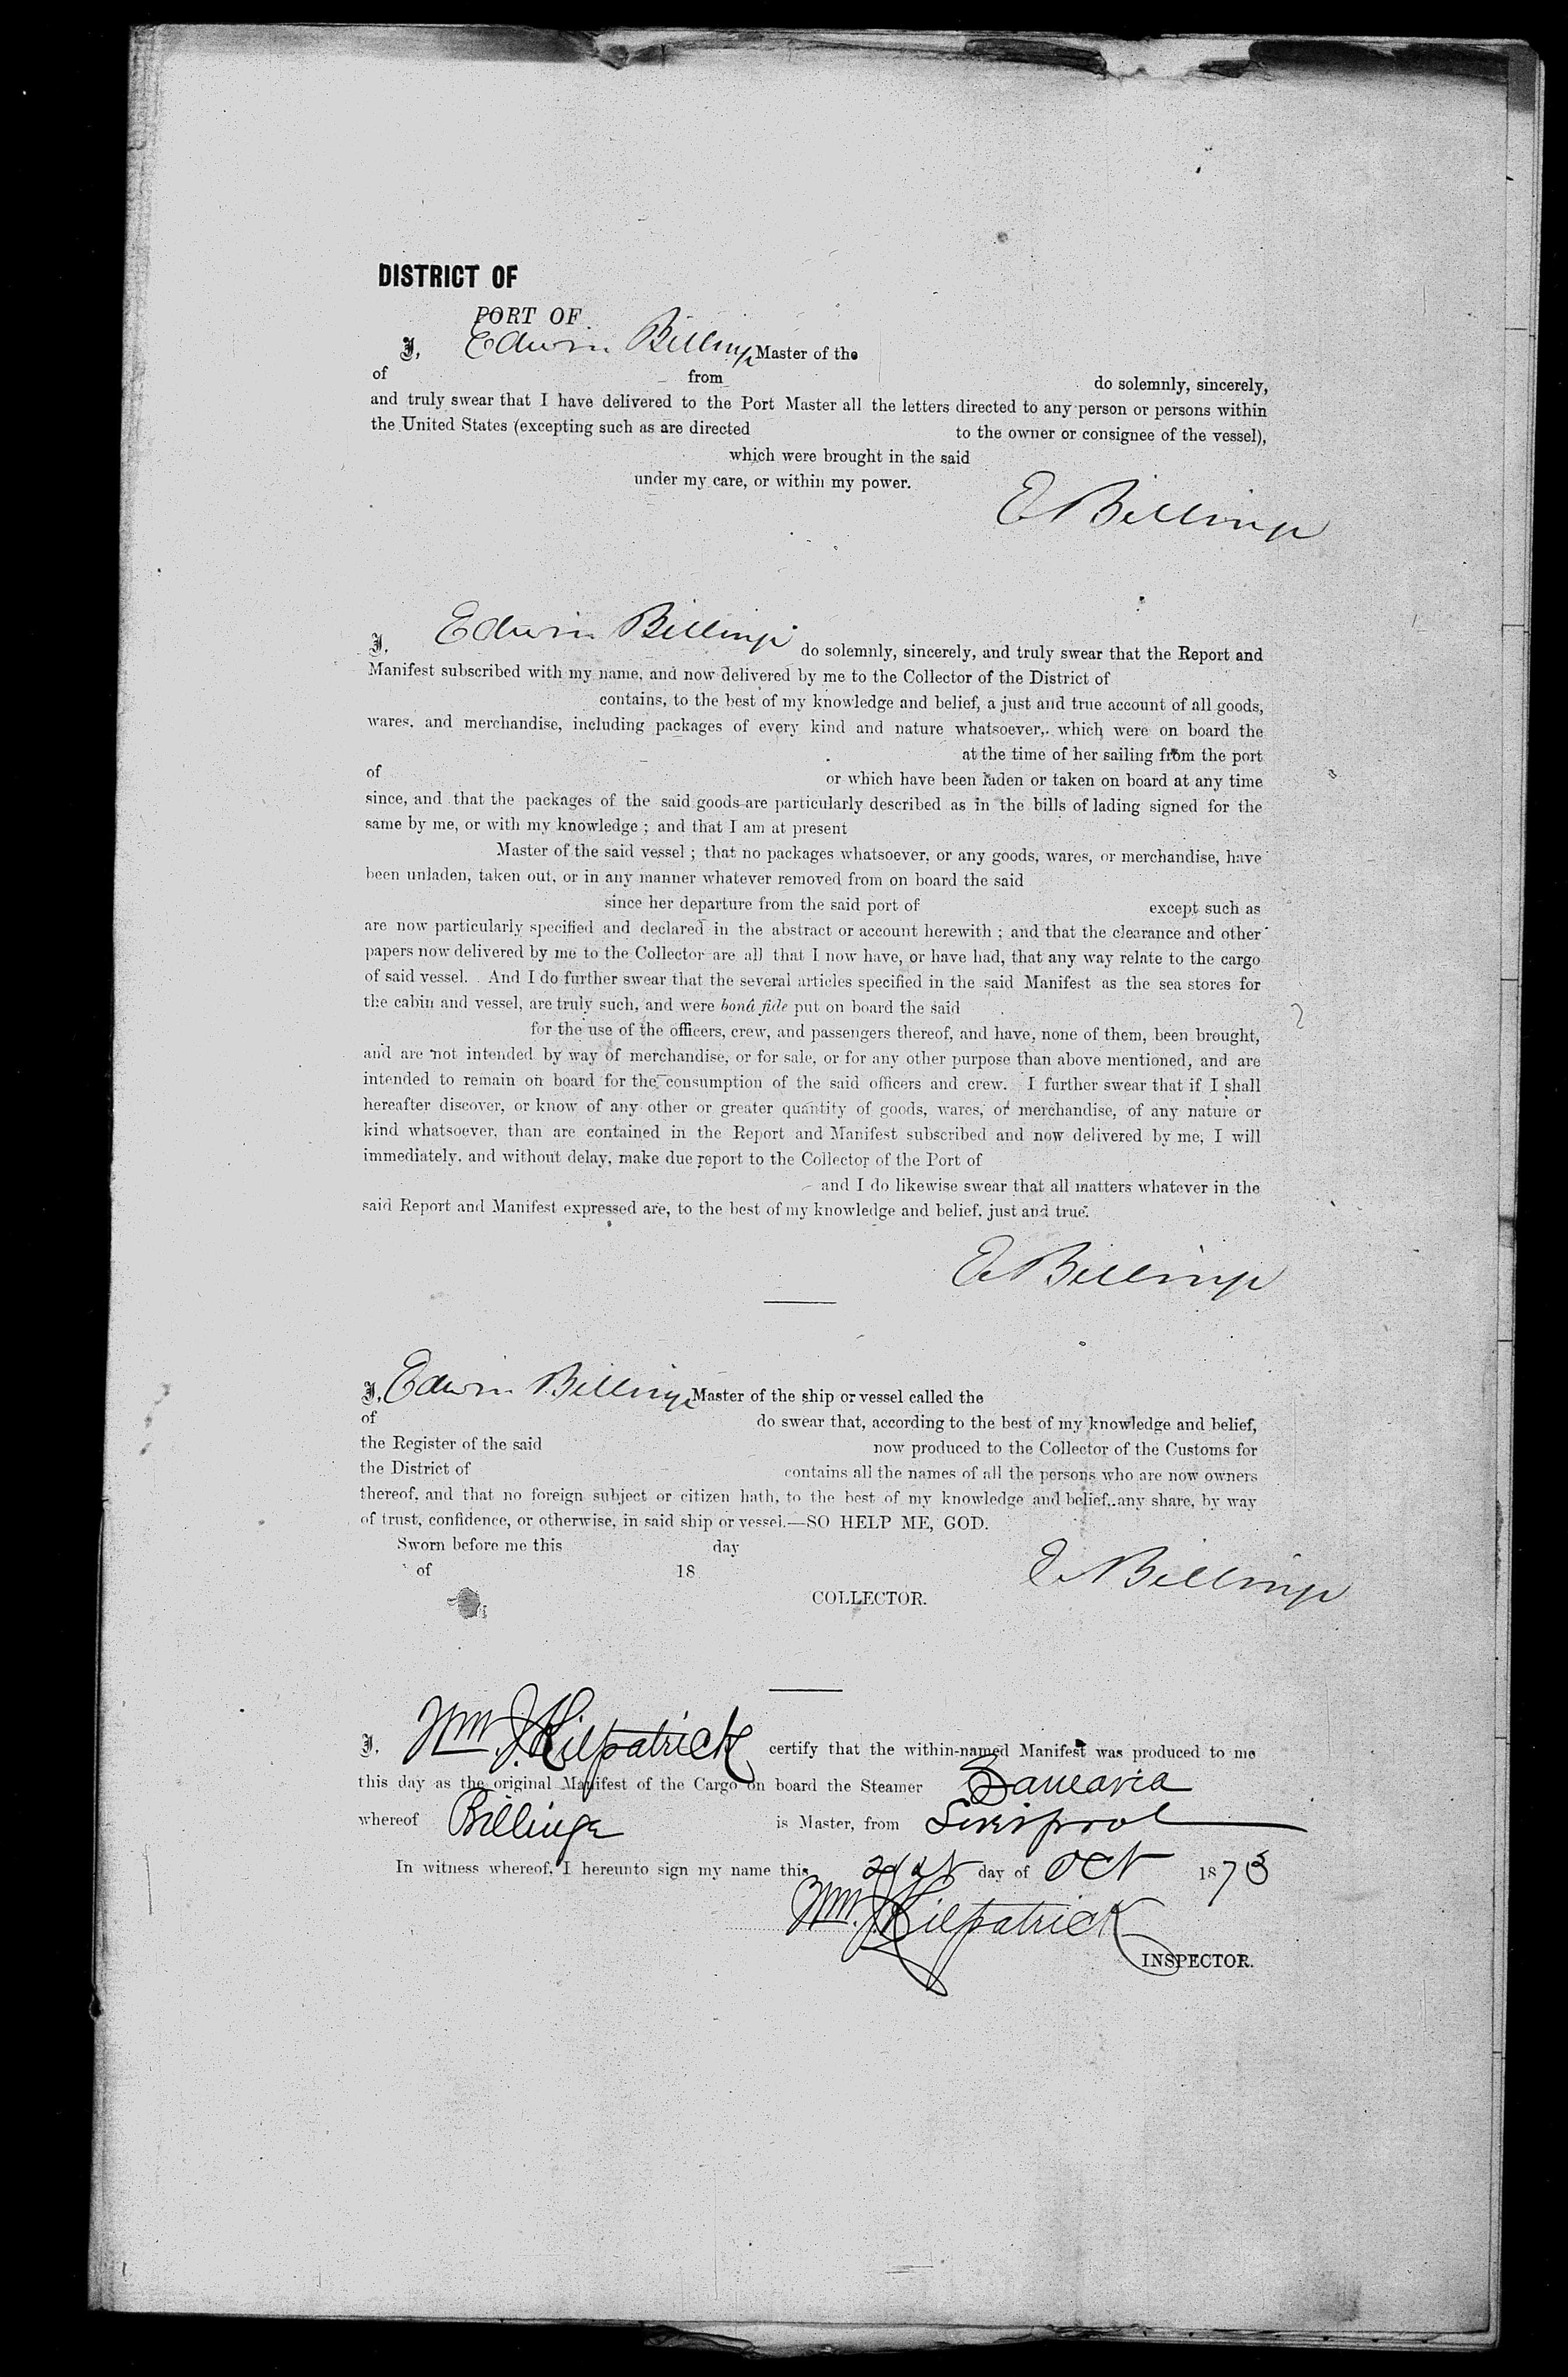 DISTRICT OF
PORT OF
I, Edwin Billinge Master of the
of from do solemnly, sincerely,
and truly swear that I have delivered to the Port Master all the letters directed to any person or persons within
the United States (excepting such as are directed to the owner or consignee of the vessel),
which were brought in the said
under my care, or within my power.
E Billinge
I, Edwin Billinge do solemnly, sincerely, and truly swear that the Report and
Manifest subscribed with my name, and now delivered by me to the Collector of the District of
contains, to the best of my knowledge and belief, a just and true account of all goods,
wares, and merchandise, including packages of every kind and nature whatsoever, which were on board the
at the time of her sailing from the port
of or which have been laden or taken on board at any time
since, and that the packages of the said goods are particularly described as in the bills of lading signed for the
same by me, or with my knowledge ; and that I am at present
Master of the said vessel ; that no packages whatsoever, or any goods, wares, or merchandise, have
been unladen, taken out, or in any manner whatever removed from on board the said
since her departure from the said port of except such as
are now particularly specified and declared in the abstract or account herewith ; and that the clearance and other
papers now delivered by me to the Collector are all that I now have, or have had, that any way relate to the cargo
of said vessel. And I do further swear that the several articles specified in the said Manifest as the sea stores for
the cabin and vessel, are truly such, and were bonâ fide put on board the said
for the use of the officers, crew, and passengers thereof, and have, none of them, been brought,
and are not intended by way of merchandise, or for sale, or for any other purpose than above mentioned, and are
intended to remain on board for the consumption of the said officers and crew. I further swear that if I shall
hereafter discover, or know of any other or greater quantity of goods, wares, or merchandise, of any nature or
kind whatsoever, than are contained in the Report and Manifest subscribed and now delivered by me, I will
immediately, and without delay, make due report to the Collector of the Port of
and I do likewise swear that all matters whatever in the
said Report and Manifest expressed are, to the best of my knowledge and belief, just and true.
E Billinge
I, Edwin Billinge Master of the ship or vessel called the
of do swear that, according to the best of my knowledge and belief,
the Register of the said now produced to the Collector of the Customs for
the District of contains all the names of all the persons who are now owners
thereof, and that no foreign subject or citizen hath, to the best of my knowledge and belief, any share, by way
of trust, confidence, or otherwise, in said ship or vessel.—SO HELP ME, GOD.
Sworn before me this day
of 18
E Billinge
COLLECTOR.
I, Wm. J. Kilpatrick certify that the within-named Manifest was produced to me
this day as the original Manifest of the Cargo on board the Steamer
whereof Billinge is Master, from Liverpool
In witness whereof, I hereunto sign my name this 21st day of Oct 1873
Wm. J. Kilpatrick
INSPECTOR.